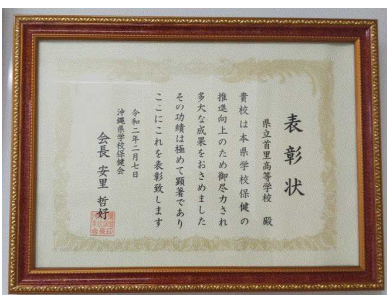 表彰状
県立首里高等学校 殿
貴校は本県学校保健の
推進向上のため御尽力され
多大な成果をおさめました
その功績は極めて顕著であり
ここにこれを表彰致します
令和二年二月七日
沖縄県学校保健会
会長 安里 哲好